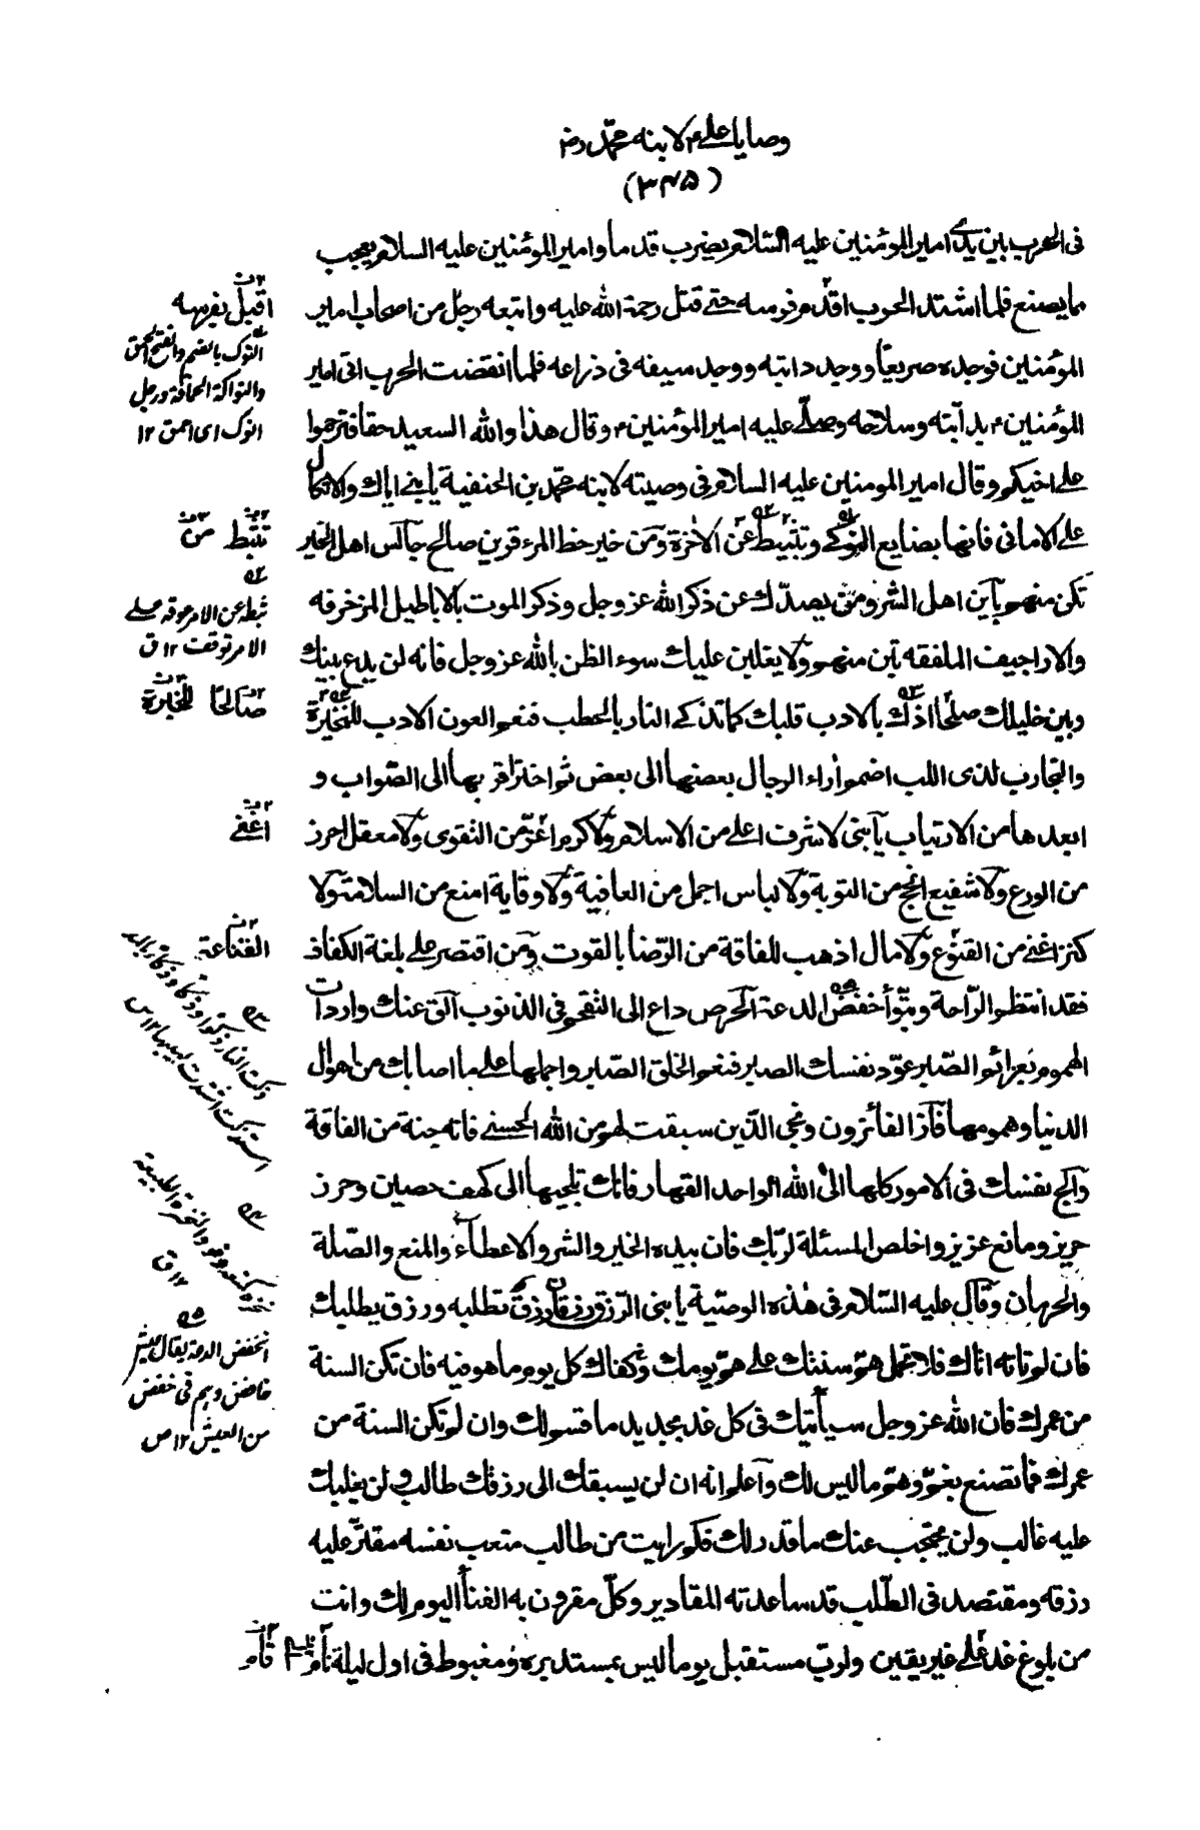 وصايا علي ؑ لابنه محمّد رضـ
(۳۴۵)
فى الحرب بين يدى امير المؤمنين عليه السّلام يضرب قدما وامير المؤمنين عليه السلام يعجب
مما يصنع فلما اشتد الحرب اقدم فرسه حتى قتل رحمة الله عليه واتبعه رجل من اصحاب امير
المؤمنين فوجده صريعاً ووجد دابته ووجد سيفه فى ذراعه فلما انقضت الحرب اتى امير
المؤمنين ؑ بدابته وسلاحه وصلّى عليه امير المؤمنين ؑ وقال هذا والله السعيد حقا فترحموا
على اخيكم وقال امير المومنين عليه السلام فى وصيته لابنه محمّد بن الحنفية يا بنى اياك والاتكال
على الامانى فانها بضايع النوكى وتثبيط عن الآخرة ومن خير حظ المرء قرين صالح جالس اهل الخير
تكن منهم باين اهل الشر ومن يصدّك عن ذكر الله عز وجل وذكر الموت بالاباطيل المزخرفه
والاراجيف الملفقه تبن منهم ولا يغلبن عليك سوء الظن بالله عز وجل فانه لن يدع بينك
وبين خليلك صلحًا اذك بالادب قلبك كما تذكى النار بالحطب فنعم العون الادب للنخيزة
والتجارب لذى اللب اضمم اراء الرجال بعضها الى بعض ثم اختر اقربها الى الصّواب و
ابعدها من الارتياب يا بنى لا شرف اعلى من الاسلام ولا كرم اعزّ من التقوى ولا معقل احرز
من الورع ولا شفيع انجح من التوبة ولا لباس اجمل من العافية ولا وقاية امنع من السلامة ولا
كنز اغنى من القنوع ولا مال اذهب للفاقة من الرّضا بالقوت ومن اقتصر على بلغة الكفاف
فقد انتظم الرّاحة وتبوّأ خفض الدعة الحرص داع الى التقحم فى الذنوب الق عنك واردات
الهموم بعزائم الصّبر عوّد نفسك الصبر فنعم الخلق الصّبر واحملها على ما اصابك من اهوال
الدنيا وهمومها فاز الفائزون ونجى الذّين سبقت لهم من الله الحسنى فانه جنة من الفاقة
والجئ نفسك فى الامور كلها الى الله الواحد القهار فانك تلجيها الى كهف حصين وحرز
حريز ومانع عزيز واخلص المسئلة لربّك فان بيده الخير والشر والاعطاء والمنع والصّلة
والحرمان وقال عليه السّلام فى هذه الوصيّة يا بنى الرّزق رزقان رزق تطلبه ورزق يطلبك
فان لم تاته اتاك فلا تحمل همّ سنتك على همّ يومك وكفاك كل يوم ما هو فيه فان تكن السنة
من عمرك فان الله عز وجل سيأتيك فى كل غد بجديد ما قسم لك وان لم تكن السنة من
عمرك فما تصنع بغمّ وهمّ ما ليس لك واعلم انه ان لن يسبقك الى رزقك طالب ولن يغلبك
عليه غالب ولن يحتجب عنك ما قدر لك فكم رايت من طالب متعب نفسه مقترّ عليه
رزقه ومقتصد فى الطّلب قد ساعدته المقادير وكلّ مقرون به الفنأ اليوم لك وانت
من بلوغ غد على غير يقين ولربّ مستقبل يوما ليس بمستدبره ومغبوط فى اول ليلة نام
اقبل بفرسه
النوك بالضم والفتح الحمق
والنواكة الحماقة ورجل
انوك اى احمق ۱۲
تثبط من
ثبطه عن الامر عوقه على
الامر توقف ۱۲ ق
صالحًا للنخيزة
اغنى
القناعة
الخفض الدعة يقال عيش
خافض وهم فى خفض
من العيش ۱۲ ص
قام